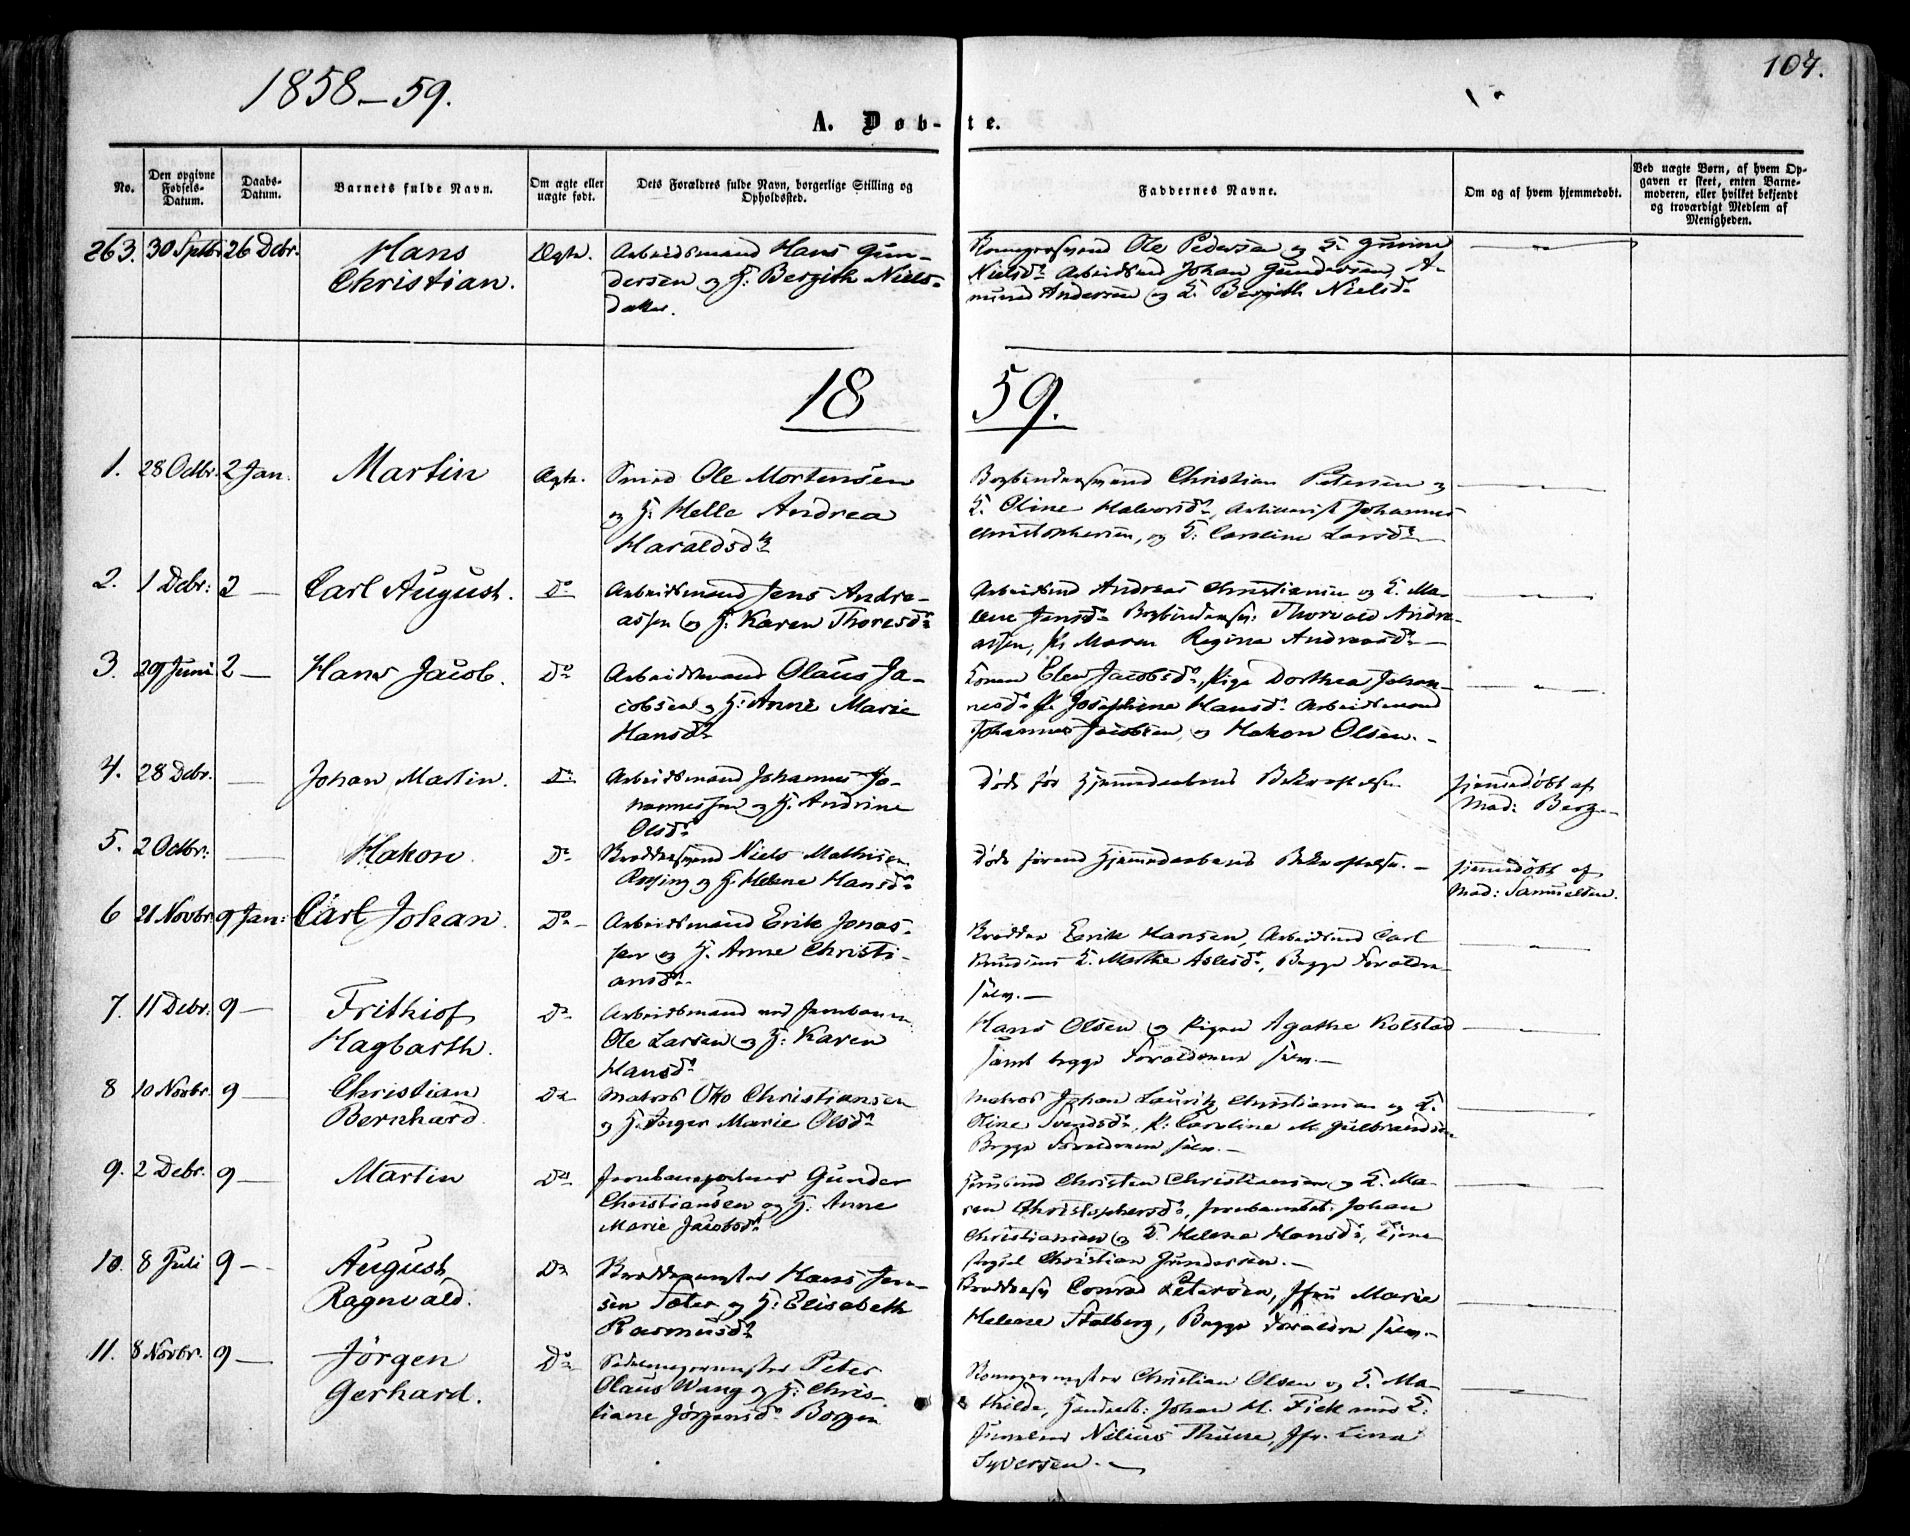 1858-59.
104.
A. Døb-te.
No.
Den opgivne Fødsels-Datum.
Daabs-Datum.
Barnets fulde Navn.
Om ægte eller uægte født.
Dets Forældres fulde Navn, borgerlige Stilling og Opholdssted.
Faddernes Navne.
Om og af hvem hjemmedøbt.
Ved uægte Børn, af hvem Opgaven er skeet, enten Barnemoderen, eller hvilket bekjendt og troværdigt Medlem af Menigheden.
263. 30 Septbr 26 Debr. Hans Ægte. Arbeidsmand Hans Gun-
Christian. dersen og H: Bergith Niels-
datter.
Ole Pedersen og K. Gunine
Nielsd. Arbeidsmd Johan Gundersen, A-
mund Andersen og K. Bergith Nielsd.
1859.
1. 28 Octbr. 2 Jan. Martin Ægte. Smed Ole Mortensen
og H: Helle Andrea
Haraldsdtr
Bogbindersvend Christian Petersen og
K. Oline Halvorsd., Johannes
Christophersen, og K: Caroline Larsd.
2. 1 Debr: 2 — Carl August. Do Arbeidsmand Jens Andre-
assen og H: Karen Thoresd.
Arbeidsmd Andreas Christiansen og K. Ma-
lene Jensd. Bogbindersv: Thorvald Andre-
assen, P. Maren Regine Andreasd. —
3. 29 Juni 2 — Hans Jacob. Do Arbeidsmand Olaus Ja-
cobsen og H: Anne Marie
Hansd.
Konen Elen Jacobsd., Pige Dorthea Johan-
nesd. P. Josephine Hansd. Arbeidsmand
Johannes Jacobsen, og Hakon Olsen. —
4. 28 Debr. — Johan Martin. Do Arbeidsmand Johannes Jo-
hannessen og H: Andrine
Olsd.
Døde før Hjemmedaabens Bekræftelse
Hjemmedøbt af
Mad: Berg —
5. 2 Octbr: — Hakon. Do Niels Mathisen
og H: Helene Hansd.
Døde førend Hjemmedaabens Bekræftelse. —
Hjemmedøbt af
Mad: Samuelsen.
6 21 Novbr 9 Jan: Carl Johan. Do Arbeidsmand Erik Jonas-
sen og H. Anne Christi-
ansd.
Erik Hansen, Arbeidsmd Carl
Knudsens K. Marthe Aslesd., Begge Forældre
selv. —
7. 11 Debr: 9 — Frithiof Do Arbeidsmand ved Jernbanen
Hagbarth. Ole Larsen og H: Karen
Hansd.
Hans Olsen og Pigen Agathe Kolstad
samt begge Forældrene selv. —
8 10 Novbr. 9 — Christian Do Matros Otto Christiansen
Bernhard. og H. Inger Marie Olsd.
Matros Johan Lauritz Christiansen og K.
Oline Svendsd., P: Caroline M. Gulbrandsen
Begge Forældrene selv. —
9. 2 Debr. 9 — Martin Do Gunder
Christiansen og H. Anne
Marie Jacobsd.
Christen Christiansen og K. Ma-
ren Christophersd., Jernbanearb. Johan
Christiansen og K. Helene Hansd., Tjene
Christian Gundersen. —
10. 8 Juli 9 — August Do Hans Jen-
Ragnvald. sen Sæter og H: Elisabeth
Rasmusd.
Conrad Petersen, Jfru Marie
Helene Stolberg, Begge Forældre selv. —
11. 8 Novbr. 9 — Jørgen Do Sadelmagermester Peter
Gerhard. Olaus Wang og H: Chris-
tiane Jørgensd. Borgen
Christian Olsen og K. Ma-
thilde, Johan H. Fick med K:
Nilius Thune, Jfr. Lina
Syversen. —